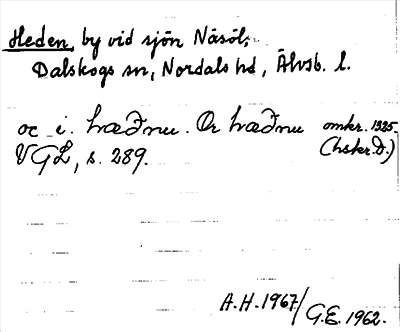 Heden, by vid sjön Näsöl,
Dalskogs sn, Nordals hd, Älvsb. l.
oc i. hæðnu. Or hæðnu omkr. 1325.
VGL, s. 289. (hskr. D.)
A.H.1967/G.E. 1962.